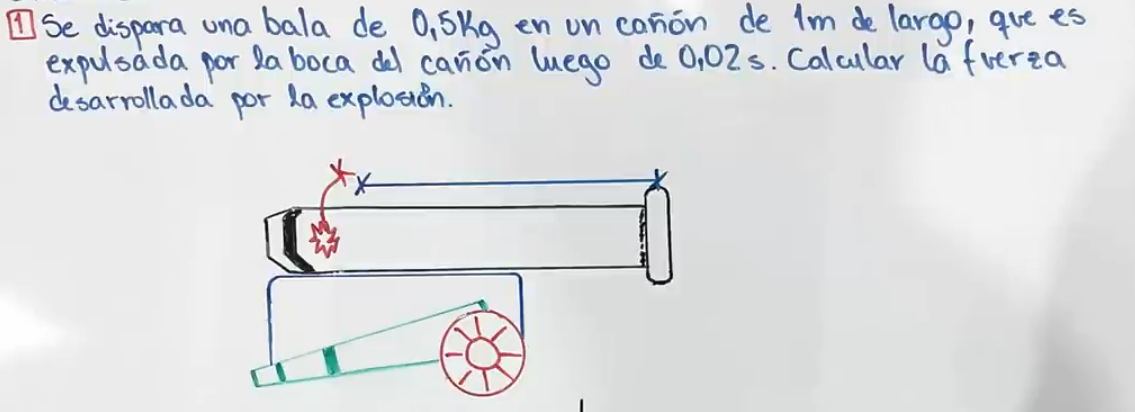 1 Se dispara una bala de 0,5Kg en un cañón de 1m de largo, que es
expulsada por la boca del cañón luego de 0,02 s. Calcular la fuerza
desarrollada por la explosión.